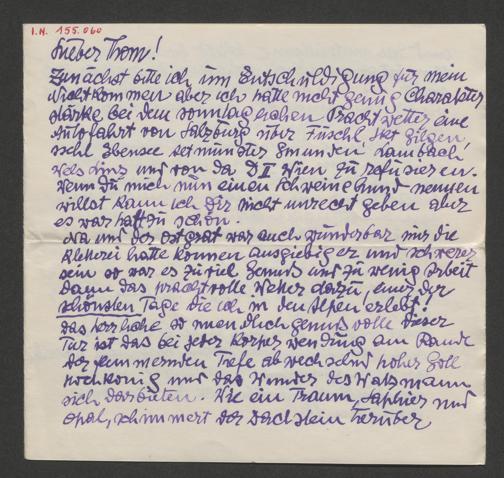 I.N. 155.060
Lieber Thom!
Zunächst bitte ich um Entschuldigung für mein
Nichtkommen aber ich hatte nicht genug Charakter
stärke bei dem sonntäglichen Prachtwetter eine
Autofahrt von Salzburg über Fuschl, Skt Gilgen,
Ischl Ebensee Gmunden Lambach
Wels Linz und von da Wien zu refusieren.
Wenn Du mich nun einen Schweinehund nennen
willst kann ich Dir nicht unrecht geben aber
es war halt zu schön.
Na und der Ostgrat war auch wunderbar nur die
Kletterei hätte können ausgiebiger und schwerer
sein so war es zuviel Genuss und zu wenig Arbeit
Dann das prachtvolle Wetter dazu, einer der
schönsten Tage die ich in den Alpen erlebt!
Das herrliche so unendlich genussvolle dieser
Tur ist das bei jeder Körperwendung am Rande
der flimmernden Tiefe abwechselnd hoher Göll
Hochkönig und das Wunder des Watzmann
sich darbieten. Wie ein Traum, Saphier und
Opal, schimmert der Dachstein herüber